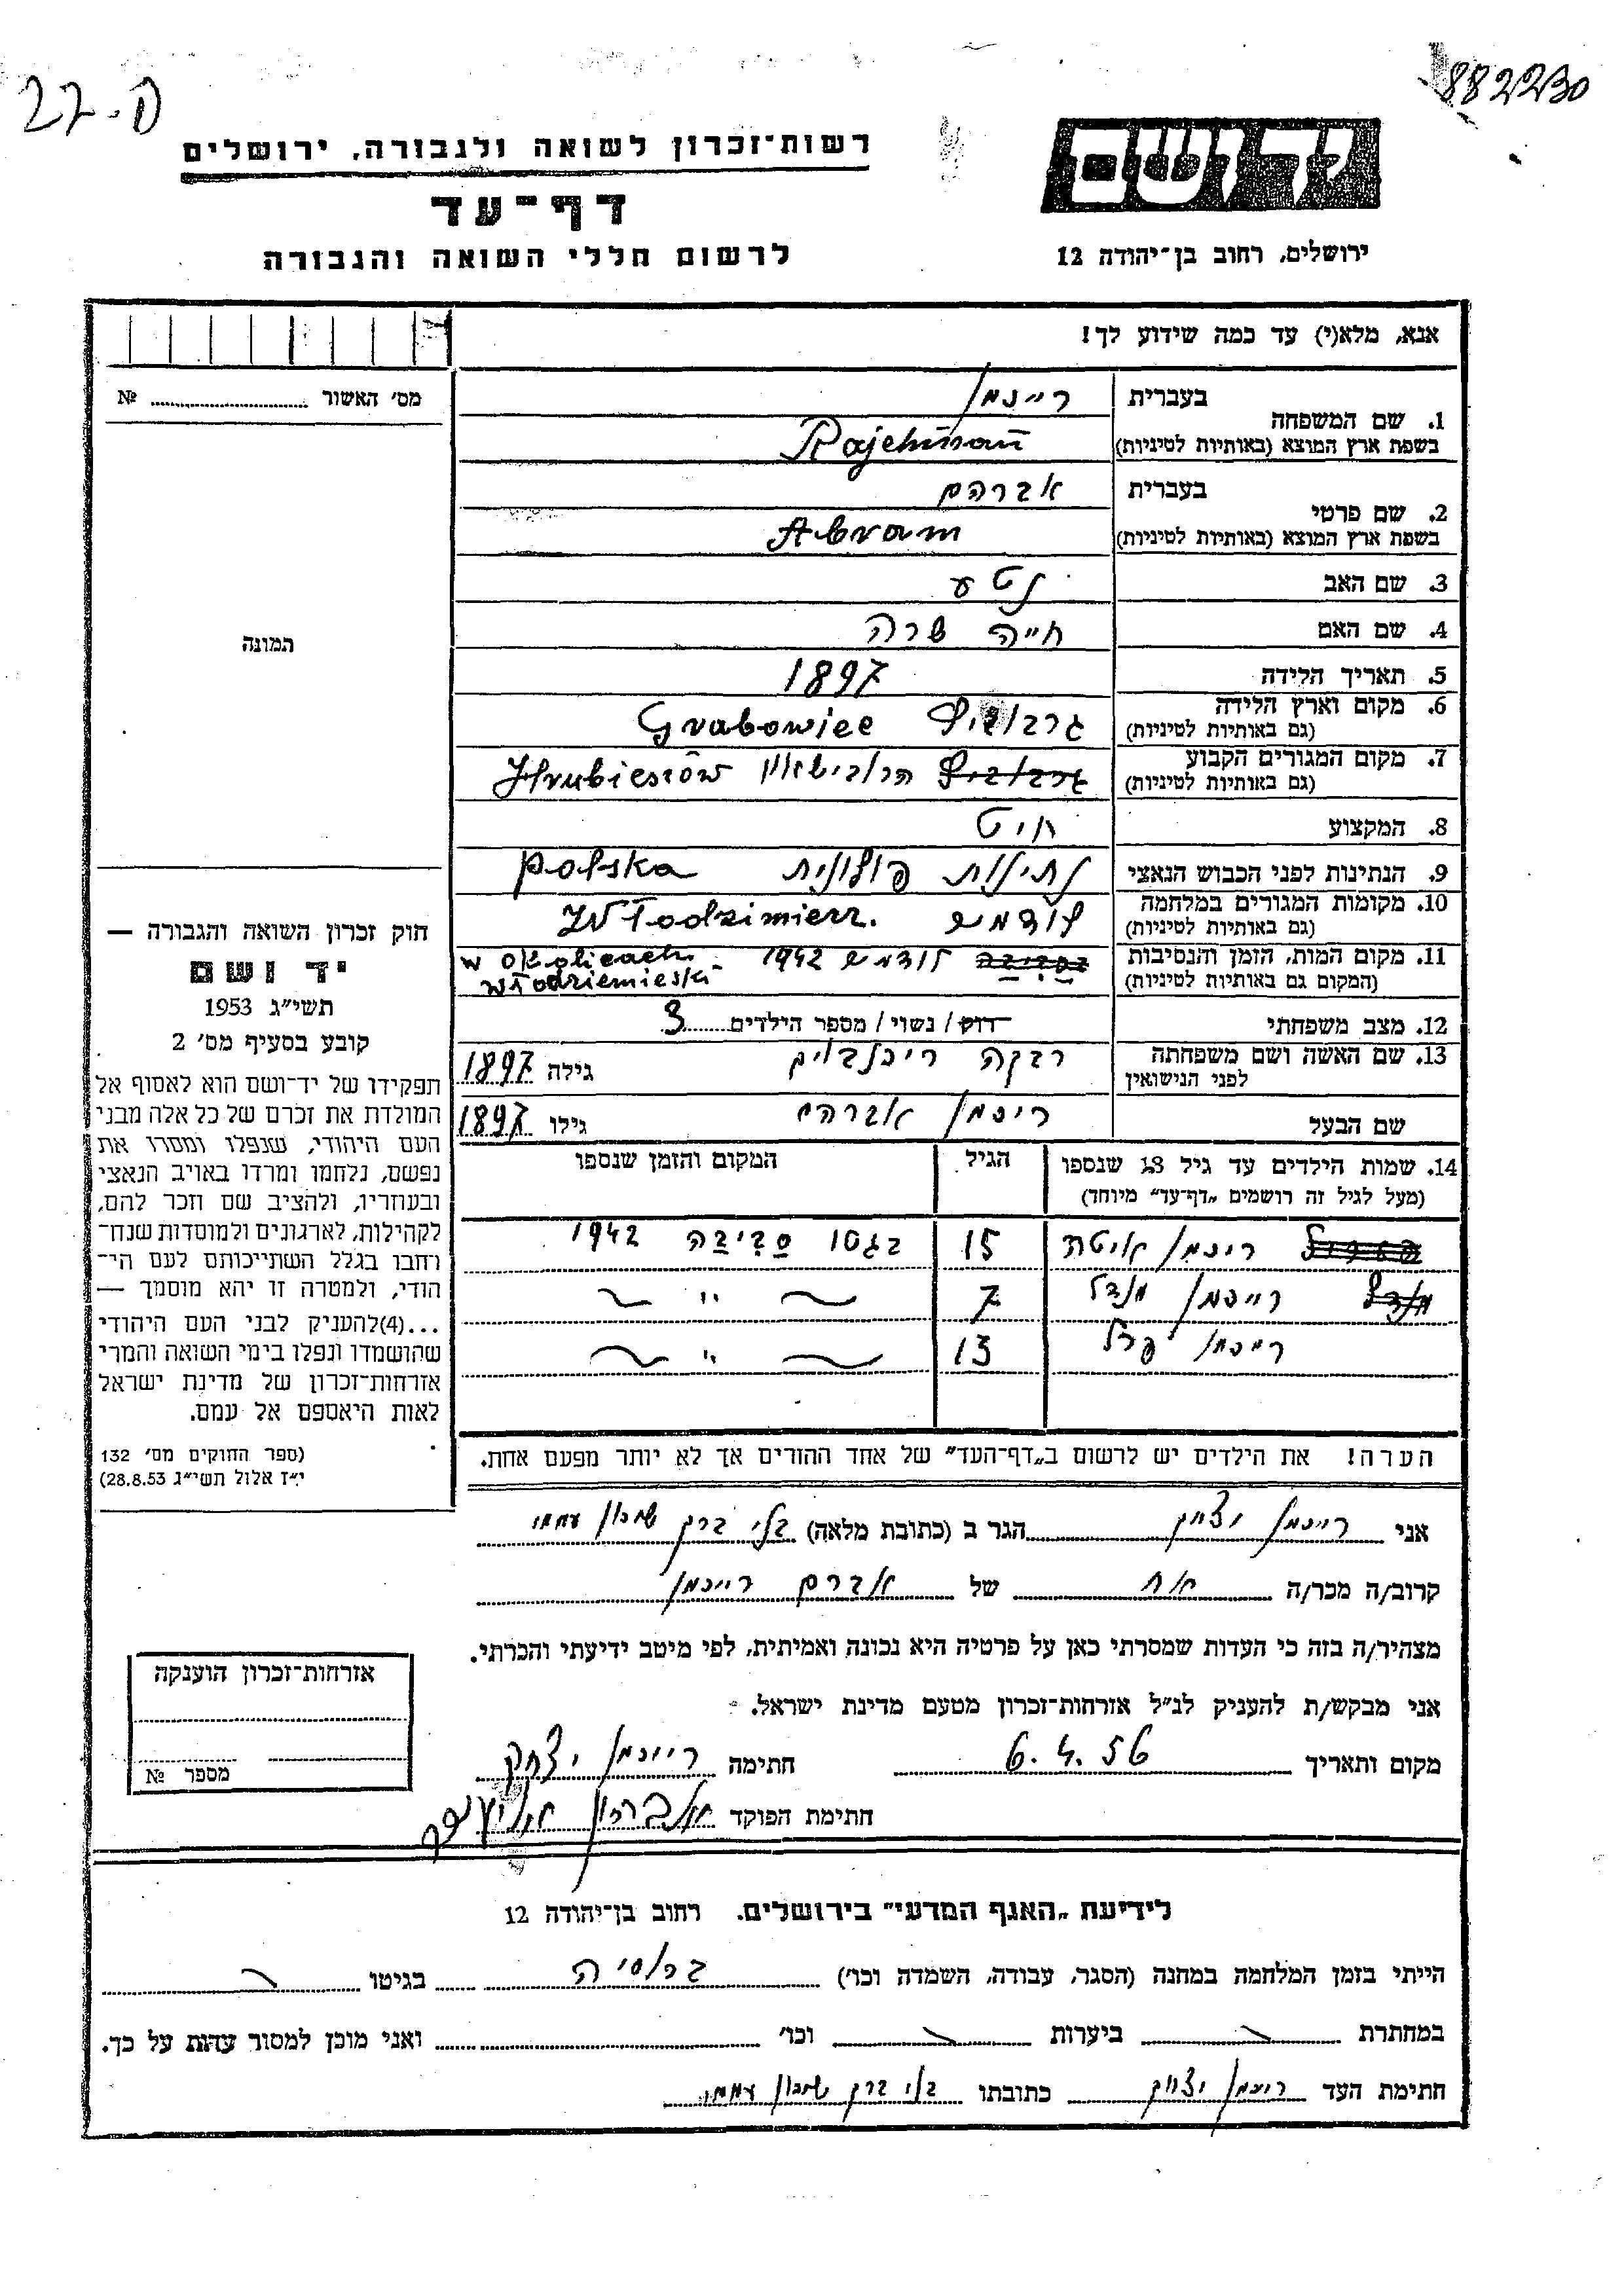 882230
27-ס
יד ושם
רשות־זכרון לשואה ולגבורה, ירושלים
דף־עד
ירושלים, רחוב בן־יהודה 12
לרשום חללי השואה והגבורה
אנא, מלא(י) עד כמה שידוע לך!
מס׳ האשור № ..........
1. שם המשפחה
בעברית רייכמן
בשפת ארץ המוצא (באותיות לטיניות) Rajchman
2. שם פרטי
בעברית אברהם
בשפת ארץ המוצא (באותיות לטיניות) Abram
3. שם האב נטע
4. שם האם חייה שרה
5. תאריך הלידה 1897
6. מקום וארץ הלידה גרבוביץ Grabowiec
(גם באותיות לטיניות)
7. מקום המגורים הקבוע גרבוביץ הרובישאוו Hrubieszów
(גם באותיות לטיניות)
8. המקצוע חיט
9. הנתינות לפני הכבוש הנאצי נתינות פולונית polska
10. מקומות המגורים במלחמה לודמיש Włodzimierz.
(גם באותיות לטיניות)
11. מקום המות, הזמן והנסיבות בסביבה לודמיש 1942 w okolicach
(המקום גם באותיות לטיניות) włodziemieska
12. מצב משפחתי רווק / נשוי / מספר הילדים 3
13. שם האשה ושם משפחתה רבקה גילה 1897
לפני הנישואין
שם הבעל ריכמן אברהם גילו 1897
14. שמות הילדים עד גיל 18 שנספו הגיל המקום והזמן שנספו
(מעל לגיל זה רושמים „דף־עד״ מיוחד)
ריכמן איטה 15 סביבה 1942
רייכמן מנדל 7 〃
ריכמן פרל 13 〃
הערה! את הילדים יש לרשום ב„דף־העד״ של אחד ההורים אך לא יותר מפעם אחת.
תמונה
חוק זכרון השואה והגבורה —
יד ושם
תשי״ג 1953
קובע בסעיף מס׳ 2
תפקידו של יד־ושם הוא לאסוף אל
המולדת את זכרם של כל אלה מבני
העם היהודי, שנפלו ומסרו את
נפשם, נלחמו ומרדו באויב הנאצי
ובעוזריו, ולהציב שם וזכר להם,
לקהילות, לארגונים ולמוסדות שנח־
רחבו בגלל השתייכותם לעם הי־
הודי, ולמטרה זו יהא מוסמך —
...(4)להעניק לבני העם היהודי
שהושמדו ונפלו בימי השואה והמרי
אזרחות־זכרון של מדינת ישראל
לאות היאספם אל עמם.
(ספר החוקים מס׳ 132
י״ז אלול תשי״ג 28.8.53)
אני רייכמן יצחק הגר ב (כתובת מלאה) בני ברק שיכון עממי
קרוב/ה מכר/ה אח של אברם רייכמן
מצהיר/ה בזה כי העדות שמסרתי כאן על פרטיה היא נכונה ואמיתית, לפי מיטב ידיעתי והכרתי.
אני מבקש/ת להעניק לנ״ל אזרחות־זכרון מטעם מדינת ישראל.
מקום ותאריך 6.4.56 חתימה רייכמן יצחק
חתימת הפוקד
אזרחות־זכרון הוענקה
מספר №
לידיעת „האגף המדעי״ בירושלים. רחוב בן־יהודה 12
הייתי בזמן המלחמה במחנה (הסגר, עבודה, השמדה וכו׳) ברוסיה בגיטו
במחתרת ביערות וכו׳ ואני מוכן למסור עדות על כך.
חתימת העד ריכמן יצחק כתובתו בני ברק שיכון עממי